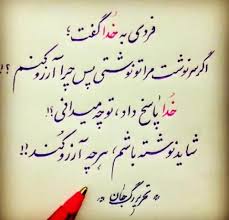 فردی به خدا گفت؛
اگر سرنوشت مرا تو نوشتی پس چرا آرزو کنم ؟!!
خدا پاسخ داد، تو چه میدانی؟!
شاید نوشته باشم، هر چه آرزو کند!!
تحریر